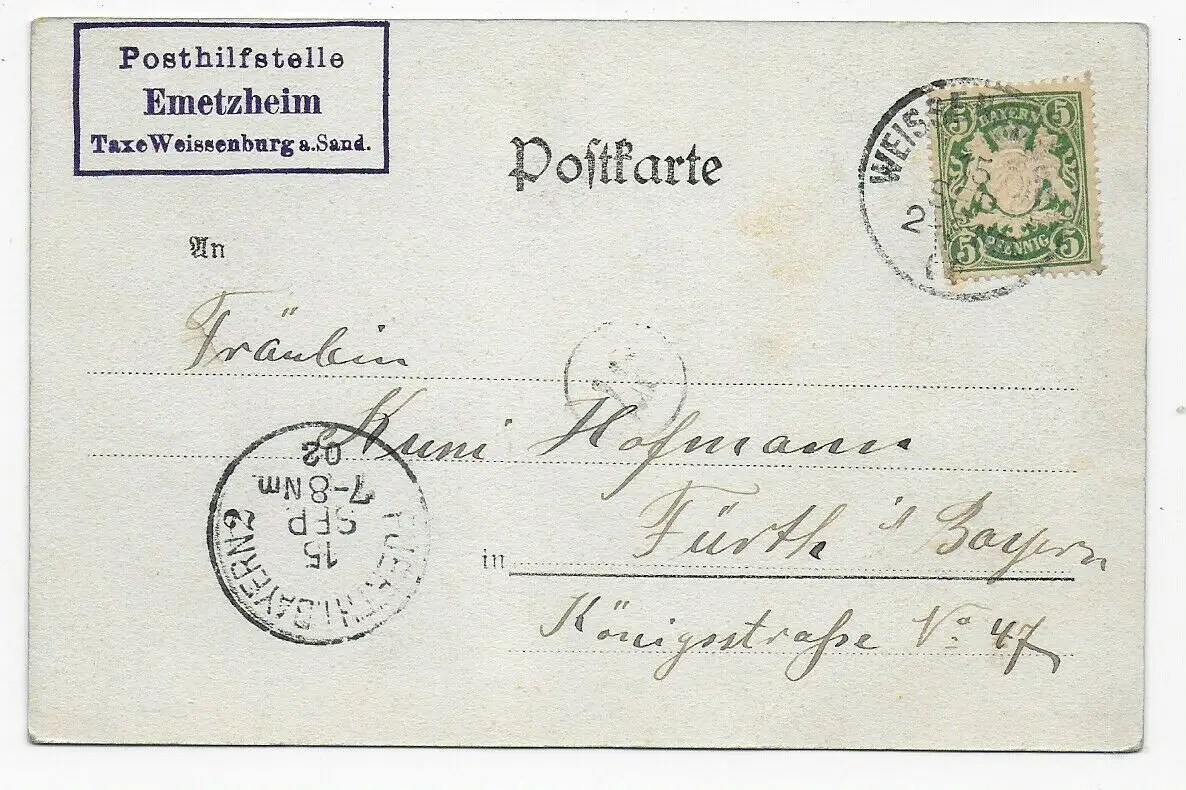 Posthilfstelle
Emetzheim
Taxe Weissenburg a. Sand.
Postkarte
WEISSEN
15
SEP
2
5 BAYERN 5
5 PFENNIG 5
An
Fräulein
Kuni Hofmann
in Fürth i/s Bayern
Königsstraße No. 47
FUERTH I. BAYERN 2
15
SEP.
7-8 Nm
02